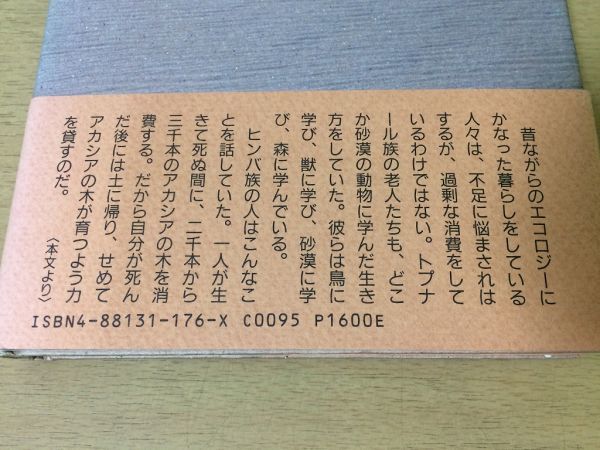 昔ながらのエコロジーに
かなった暮らしをしている
人々は、不足に悩まされは
するが、過剰な消費をして
いるわけではない。トプナ
ール族の老人たちも、どこ
か砂漠の動物に学んだ生き
方をしていた。彼らは鳥に
学び、獣に学び、砂漠に学
び、森に学んでいる。
ヒンバ族の人はこんなこ
とを話していた。一人が生
きて死ぬ間に、二千本から
三千本のアカシアの木を消
費する。だから自分が死ん
だ後には土に帰り、せめて
アカシアの木が育つよう力
を貸すのだ。
〈本文より〉
ISBN4-88131-176-X C0095 P1600E